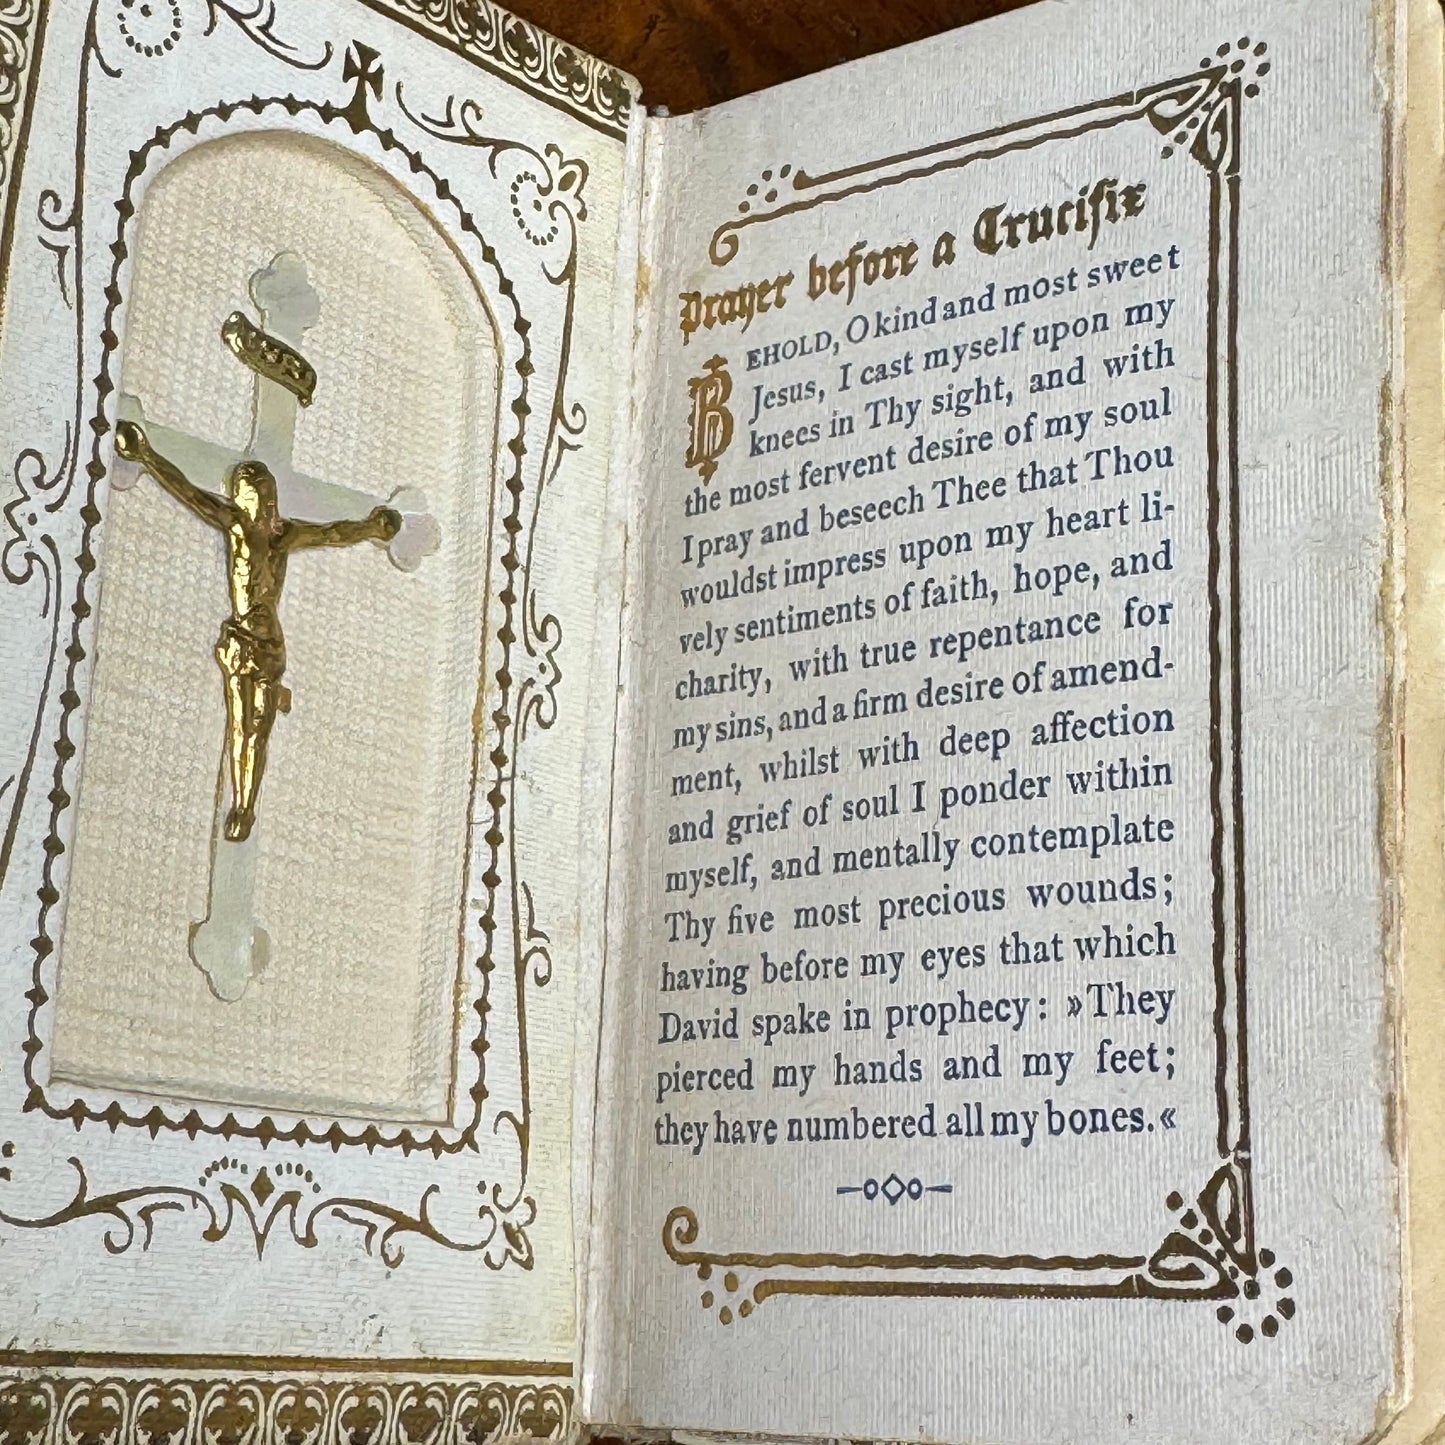 Prayer before a Crucifix
BEHOLD, O kind and most sweet
Jesus, I cast myself upon my
knees in Thy sight, and with
the most fervent desire of my soul
I pray and beseech Thee that Thou
wouldst impress upon my heart li-
vely sentiments of faith, hope, and
charity, with true repentance for
my sins, and a firm desire of amend-
ment, whilst with deep affection
and grief of soul I ponder within
myself, and mentally contemplate
Thy five most precious wounds;
having before my eyes that which
David spake in prophecy: »They
pierced my hands and my feet;
they have numbered all my bones.«